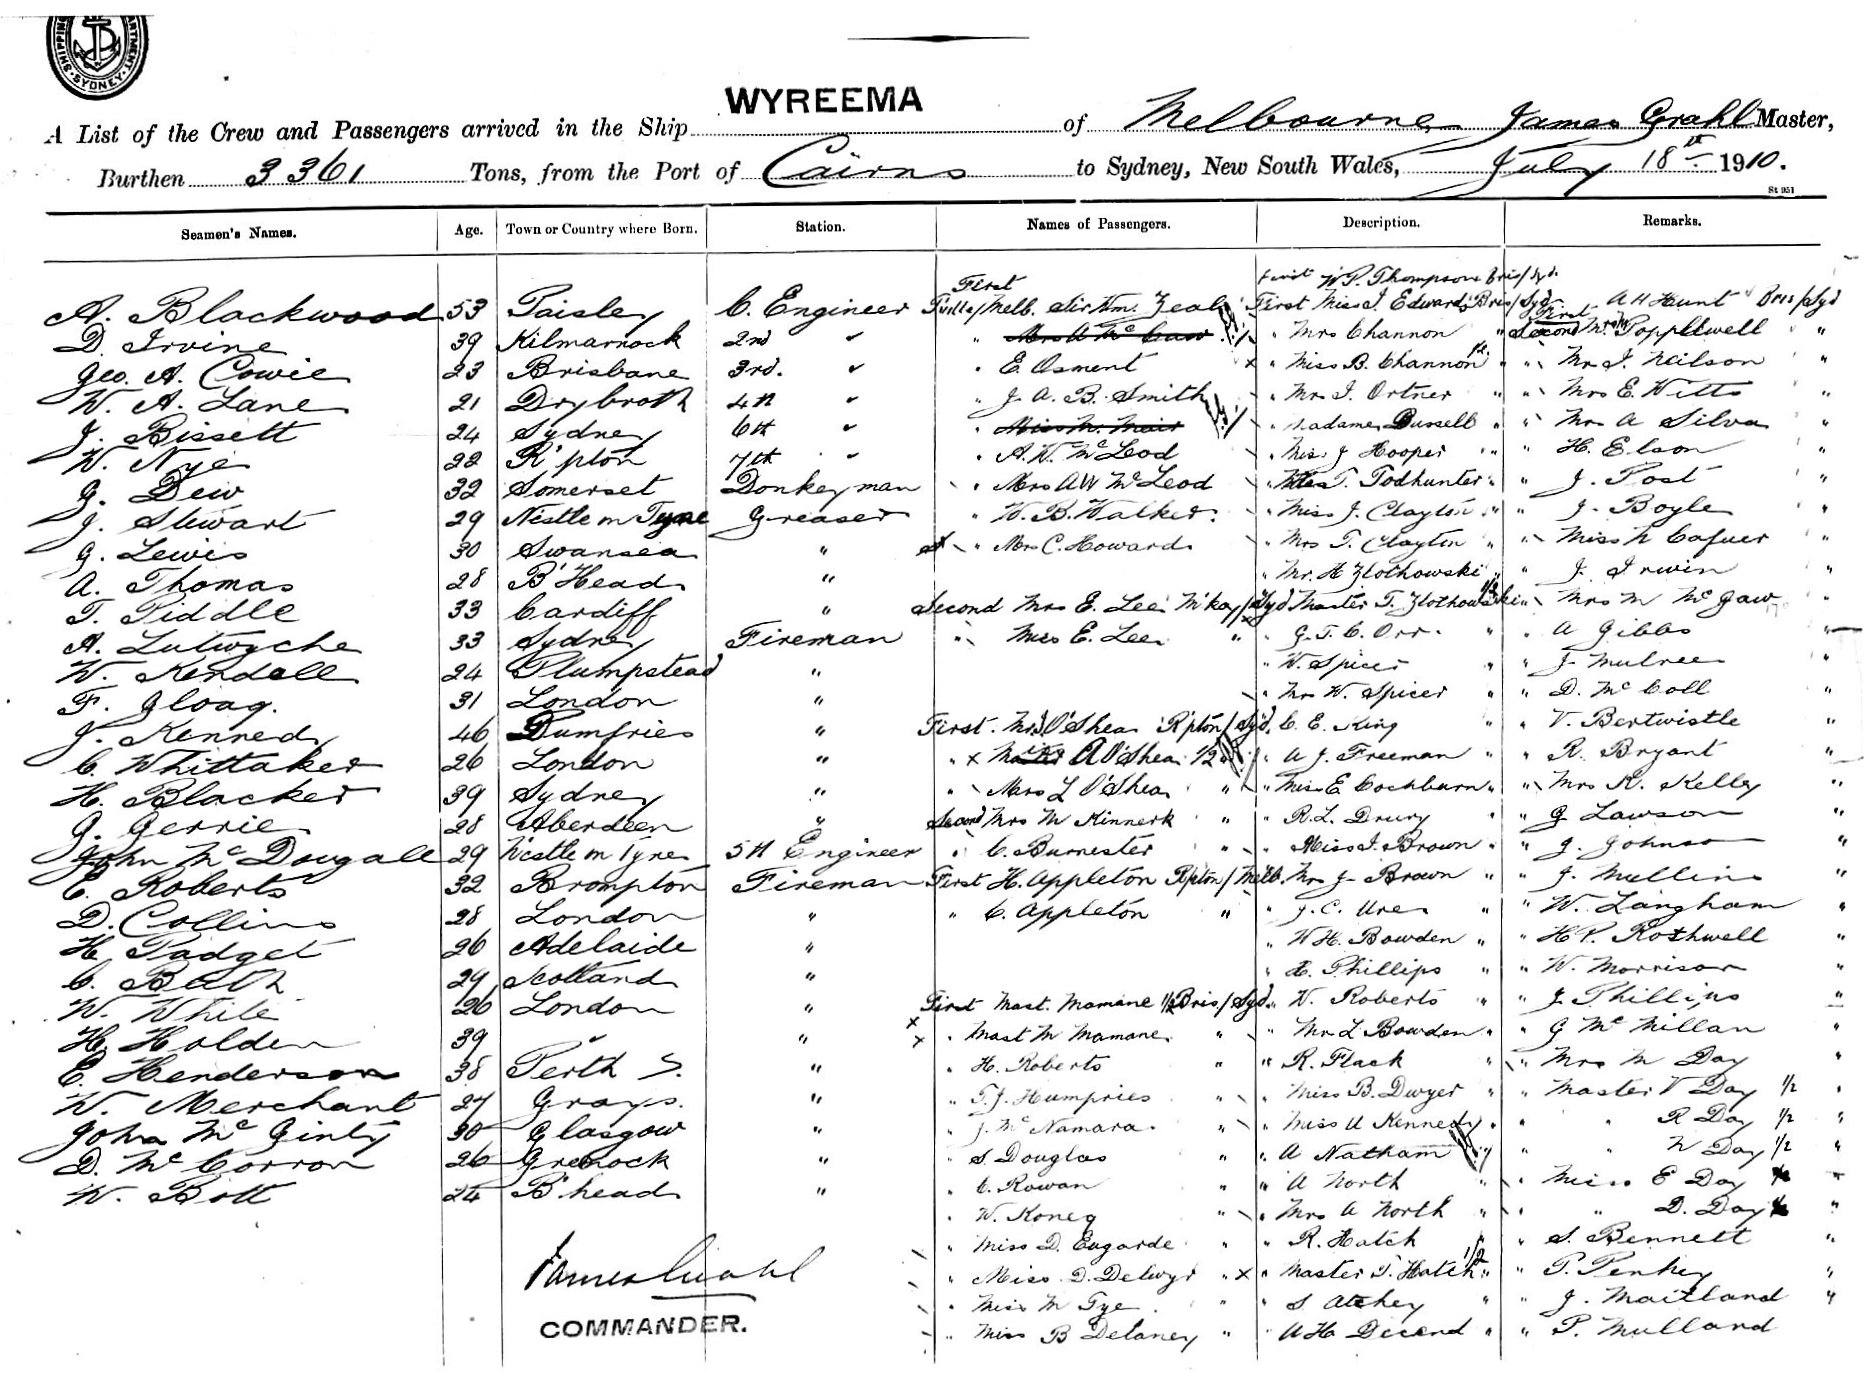 SHIPPING
DEPARTMENT
SYDNEY
WYREEMA
A List of the Crew and Passengers arrived in the Ship of Melbourne James Grahl Master,
Burthen 3361 Tons, from the Port of Cairns to Sydney, New South Wales, July 18th 1910.
St 951
Seamen's Names. Age. Town or Country where Born. Station. Names of Passengers. Description. Remarks.
First First W.P. Thompson Bris/Syd.
A. Blackwood 53 Paisley C. Engineer T'ville/Melb. Sir Wm. Zeal First Miss I. Edwards Bris/Syd First A H Haunt Bris/Syd
D. Irvine 39 Kilmarnock 2nd " " Mrs A McCaw " Mrs Channon " Second Popplewell "
Geo. A. Cowie 23 Brisbane 3rd. " " E. Osment x " Miss B. Channon " " Mr J. Neilson "
W. A. Lane 21 Drybroth 4th " " J. A. B. Smith " Mrs I. Ortner " " Mrs E. Witts "
J. Bissett 24 Sydney 6th " " Miss M. Mair " Madame Bussell " " Mrs A Silva "
W. Nye 22 R'pton 7th " " A. W. McLeod " Miss J Hooper " " H. Elson "
G. Dew 32 Somerset Donkeyman " Mrs A W McLeod " T. Todhunter " " J. Post "
J. Stewart 29 N'castle on Tyne Greaser " W. B. Walker. " Miss J. Clayton " " J. Boyle "
G. Lewis 30 Swansea " " Mrs C. Howard " Mrs T. Clayton " " Miss N "
A. Thomas 28 B'Head " " Mr. H Zlotkowski " " J. Irwin "
T. Piddle 33 Cardiff " Second Mrs E. Lee M'kay/Syd Master T. Zlotkowski " Mrs M McGaw "
A. Lutwyche 33 Sydney Fireman " Miss E. Lee " " G. T. C. Orr " " A Gibbs "
W. Kendall 24 Plumpstead " " W. Spicer " " J. Mulree "
F. Gloag. 31 London " " Mrs W. Spicer " " D. McColl "
J. Kennedy 46 Dumfries " First. Mrs O'Shea R'pton/Syd. C. E. King " " V. Bertwistle "
C. Whittaker 26 London " " x A O'Shea 1/2 " A J. Freeman " " R. Bryant "
H. Blacker 39 Sydney " " Miss L O'Shea " " Miss E Cockburn " " Mrs K. Kelley "
G. Gerrie 28 Aberdeen " Second Mrs M Kinnerk " " R. L. Drury " " G Lawson "
John McDougall 29 N'castle on Tyne 5th Engineer " C. Burnester " " Miss I. Brown " " J. Johnson "
C. Roberts 32 Brompton Fireman First H. Appleton R'pton/Melb. Mrs J. Brown " " J. Mullins "
D. Collins 28 London " " C. Appleton " " J. C. Ure " " W. Langham "
H. Padget 26 Adelaide " " W H. Bowden " " H P. Rothwell "
C. Bath 29 Scotland " " E. Phillips " " W. Morrison "
W. White 26 London " First Mast. Mamane 1/2 Bris/Syd " W. Roberts " " J. Phillips "
H. Holden 39 " " x " Mast M Mamane " " Mrs L Bowden " " G McMillan "
E. Henderson 38 Perth S. " " H. Roberts " " R. Flack " " Mrs M Day "
W. Merchant 27 Grays. " " T. J. Humpries " " Miss B. Dwyer " " Master V Day 1/2 "
John McGinty 30 Glasgow " " J. McNamara " " Miss U Kennedy " " " R Day 1/2 "
D. McCorron 26 Greenock " " S. Douglas " " A Natham " " " N Day 1/2 "
W. Bott 24 B'head " " C. Rowan " " A North " " Miss E Day "
" W. Koneg " " Mrs A North " " " D. Day "
" Miss D. Eugarde " " R. Hatch " " S. Bennett "
James Grahl " Miss D. Delwyr " x " Master T. Hatch 1/2 " " P. Penhey "
" Miss M Tye " " S Atchey " " J. Maitland "
COMMANDER. " Miss B Delaney " " A H. Decend " " P. Mulland